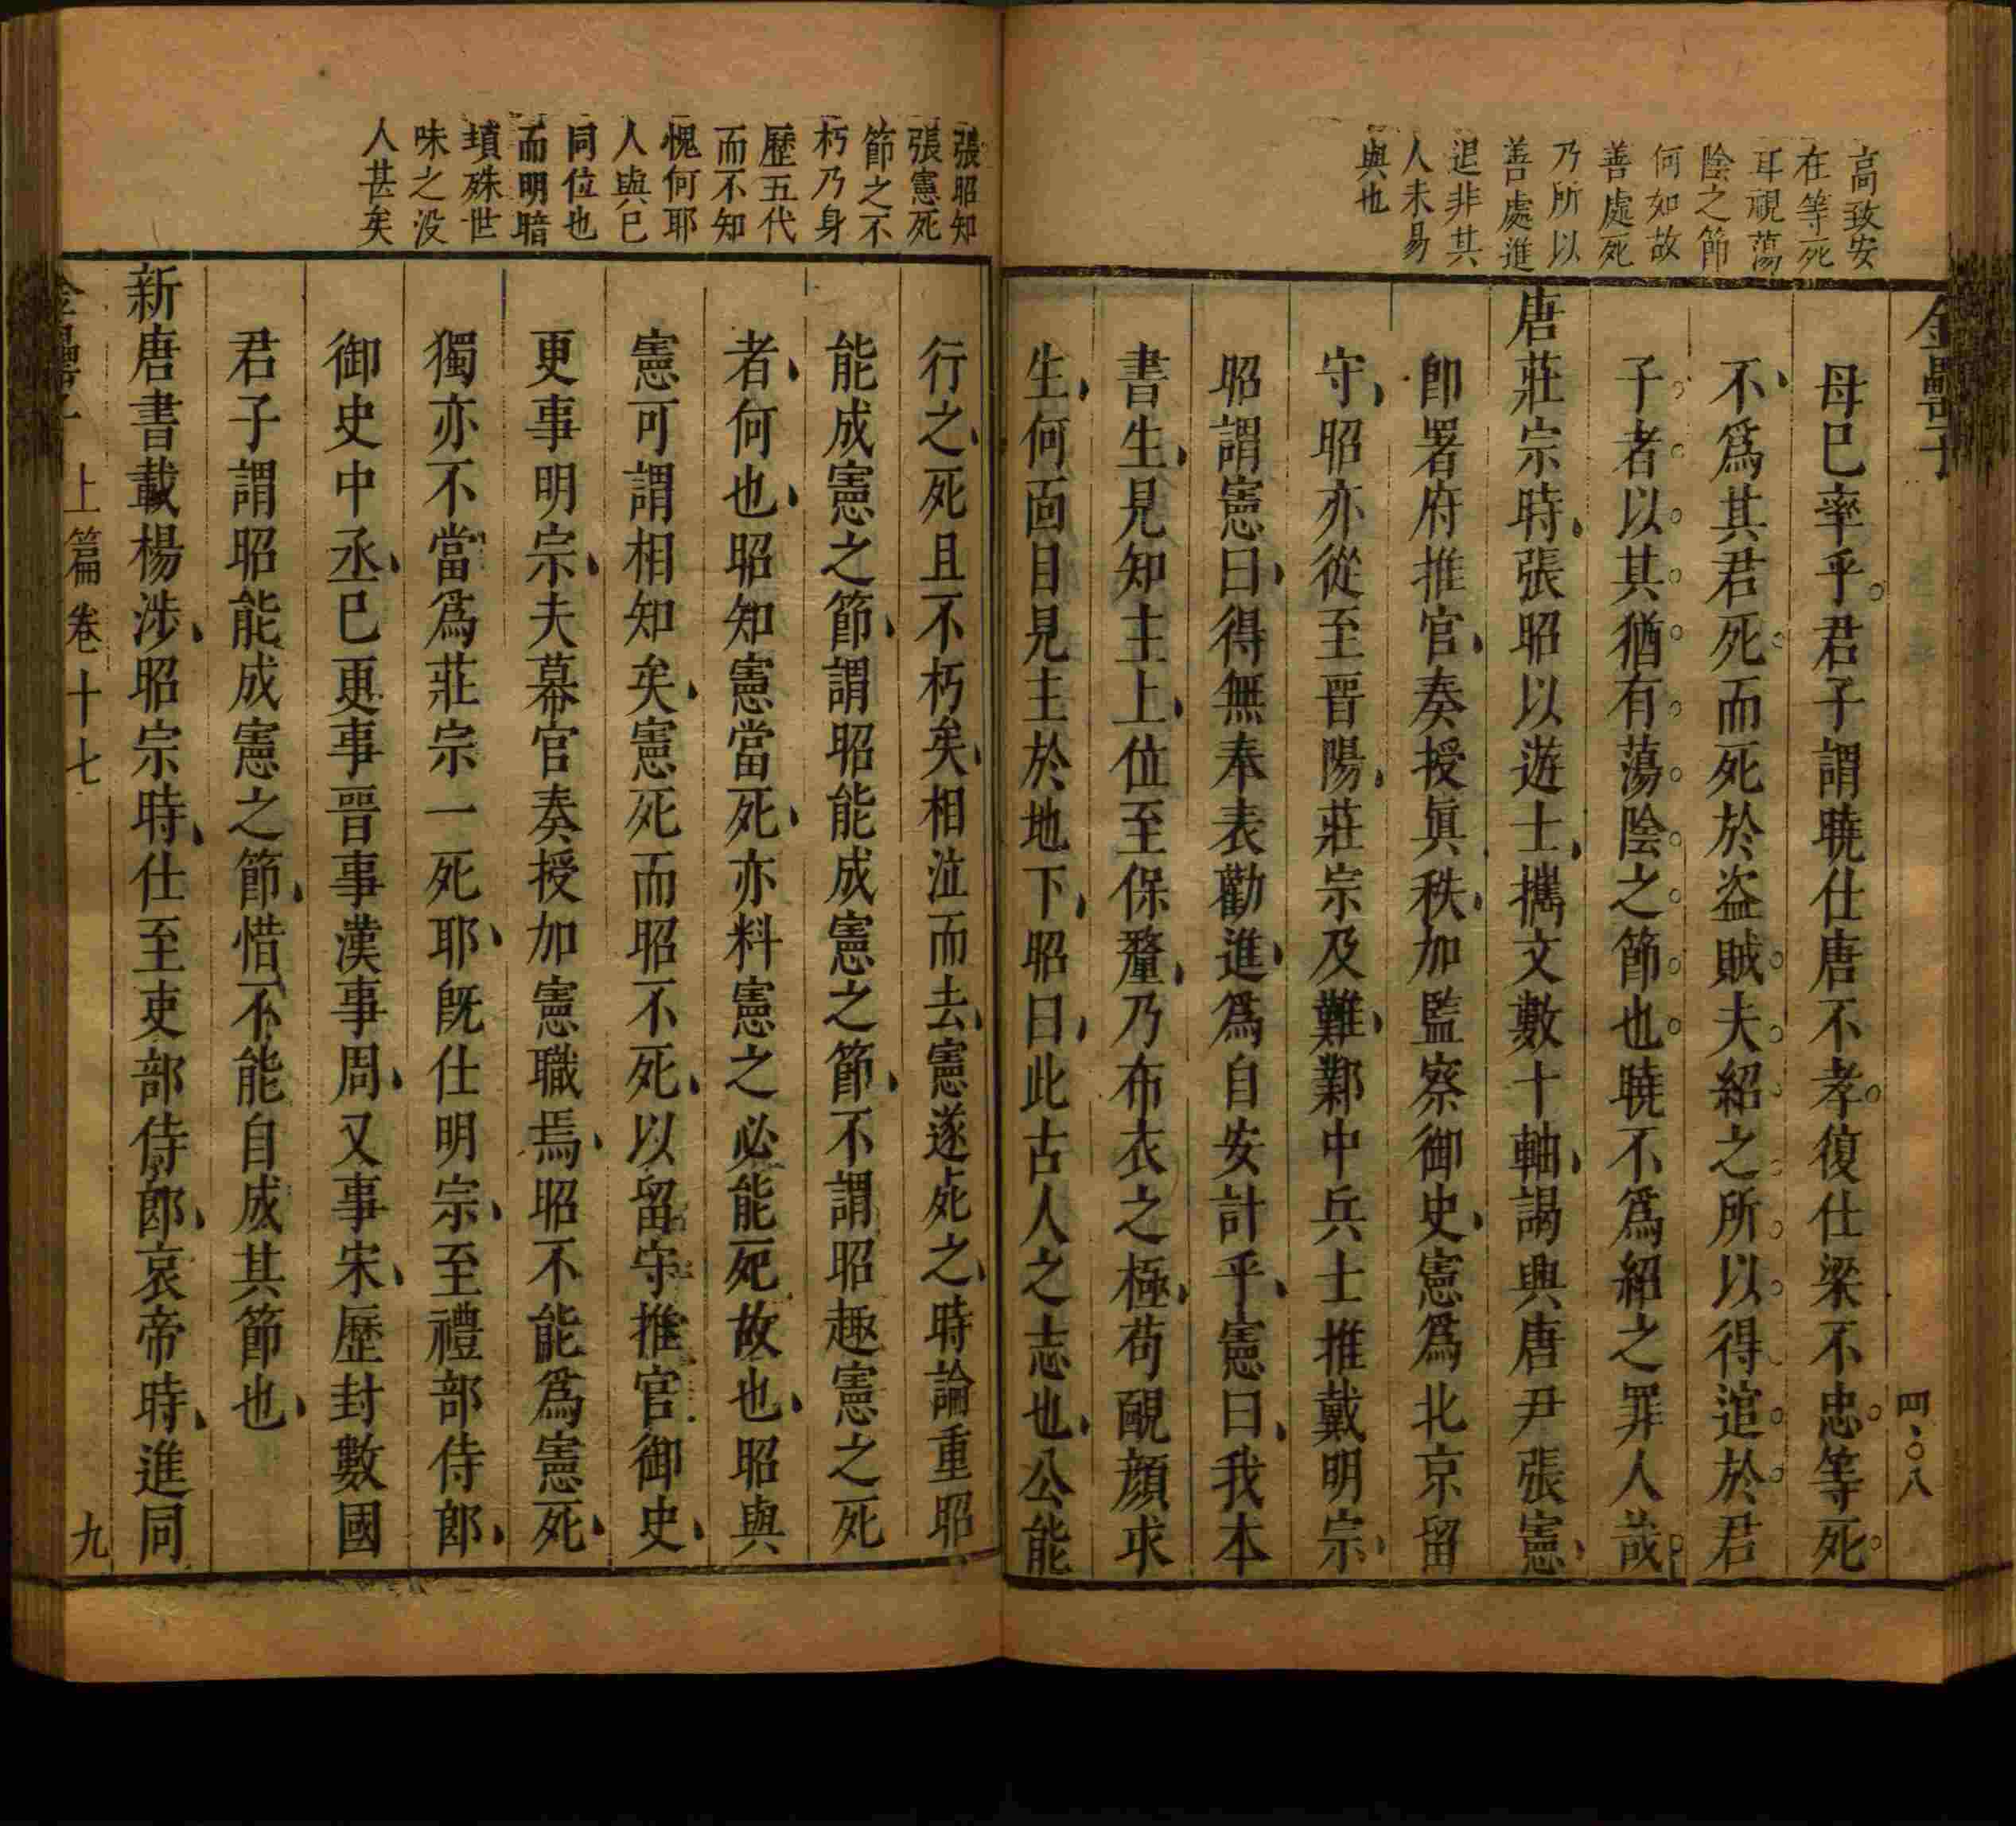 金罍子
四〇八
高致安
在等死
耳視蕩
陰之節
何如故
善處死
乃所以
善處進
退非其
人未易
與也
母已率乎君子謂曉仕唐不孝復仕梁不忠等死
不爲其君死而死於盗賊夫紹之所以得逭於君
子者以其猶有蕩陰之節也曉不爲紹之罪人哉
唐莊宗時張昭以遊士攜文數十軸謁興唐尹張憲
卽署府推官奏授眞秩加監察御史憲爲北京留
守昭亦從至晉陽莊宗及難鄴中兵士推戴明宗
昭謂憲曰得無奉表勸進爲自安計乎憲曰我本
書生見知主上位至保釐乃布衣之極苟靦顔求
生何面目見主於地下昭曰此古人之志也公能
張昭知
張憲死
節之不
朽乃身
歷五代
而不知
愧何耶
人與已
同位也
而明暗
頊殊世
味之没
人甚矣
行之死且不朽矣相泣而去憲遂死之時論重昭
能成憲之節謂昭能成憲之節不謂昭趣憲之死
者何也昭知憲當死亦料憲之必能死故也昭與
憲可謂相知矣憲死而昭不死以留守推官御史
更事明宗夫幕官奏授加憲職焉昭不能爲憲死
獨亦不當爲莊宗一死耶旣仕明宗至禮部侍郎
御史中丞已更事晉事漢事周又事宋歷封數國
君子謂昭能成憲之節惜不能自成其節也
新唐書載楊涉昭宗時仕至吏部侍郎哀帝時進同
上篇卷十七
九